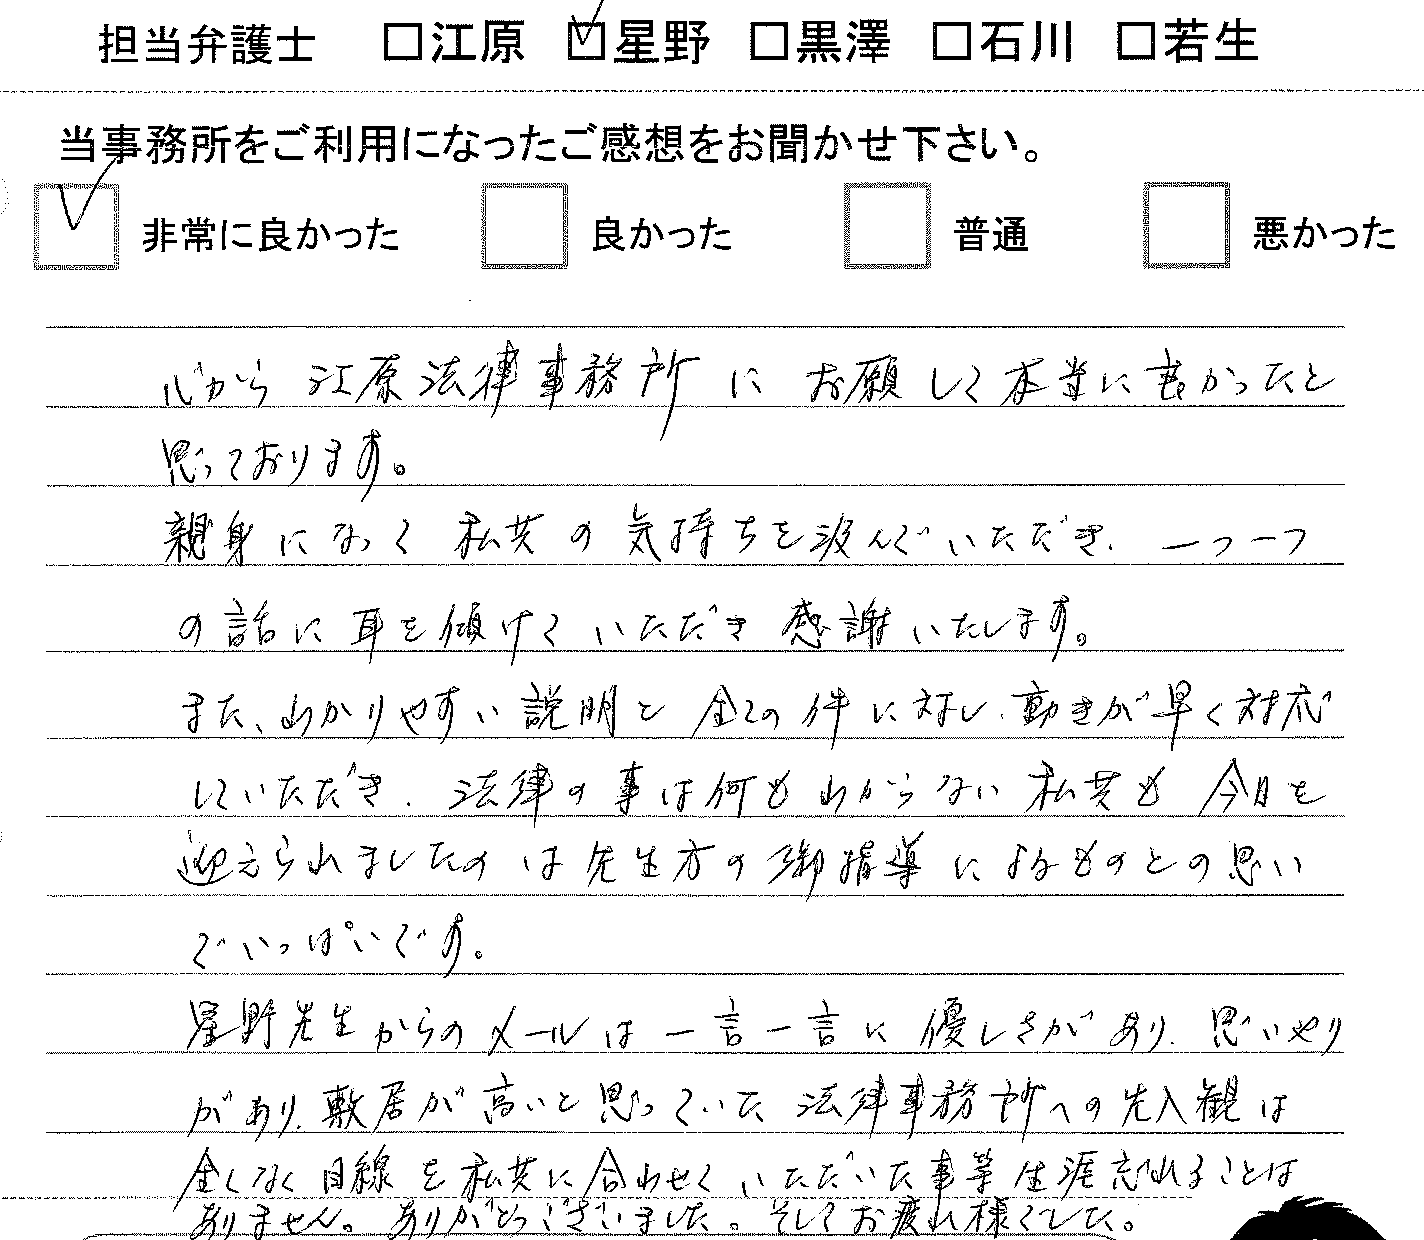 担当弁護士 □江原 ☑星野 □黒澤 □石川 □若生
当事務所をご利用になったご感想をお聞かせ下さい。
☑ 非常に良かった □ 良かった □ 普通 □ 悪かった
心から 江原法律事務所 に お願いして 本当に良かったと
思っております。
親身になって 私共の気持ちを汲んでいただき、一つ一つ
の話に耳を傾けて いただき 感謝いたします。
また、わかりやすい説明と 全ての件に対し、動きが早く対応
していただき、法律の事は何も わからない 私共も 今日を
迎えられましたのは先生方の御指導によるものとの思い
でいっぱいです。
星野先生からのメールは一言一言に優しさがあり、思いやり
があり、敷居が高いと思っていた 法律事務所への先入観は
全くなく 目線を私共に合わせて いただいた事等 生涯忘れることは
ありません。ありがとうございました。そしてお疲れ様でした。